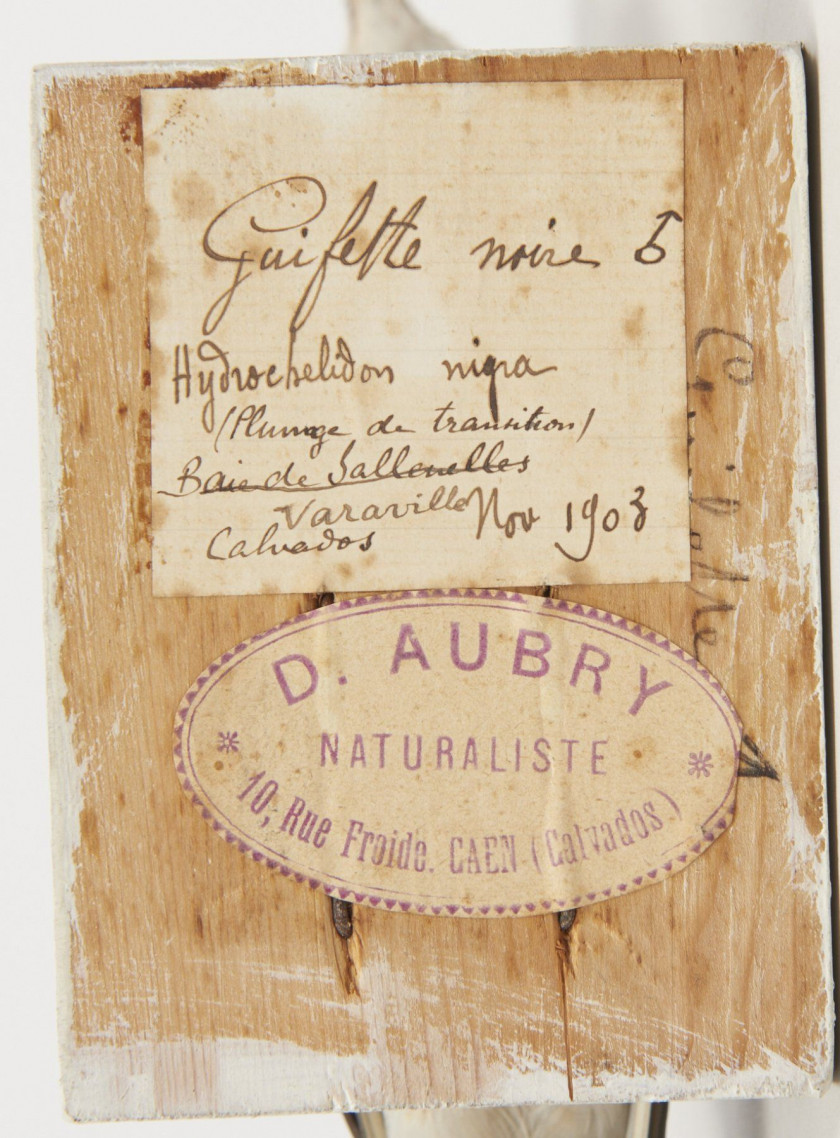 Guifette noire ♂
Hydrochelidon nigra
(Plumage de transition)
Baie de Sallenelles
Varaville
Calvados
Nov 1903
Guifette
D. AUBRY
NATURALISTE
10, Rue Froide. CAEN (Calvados.)